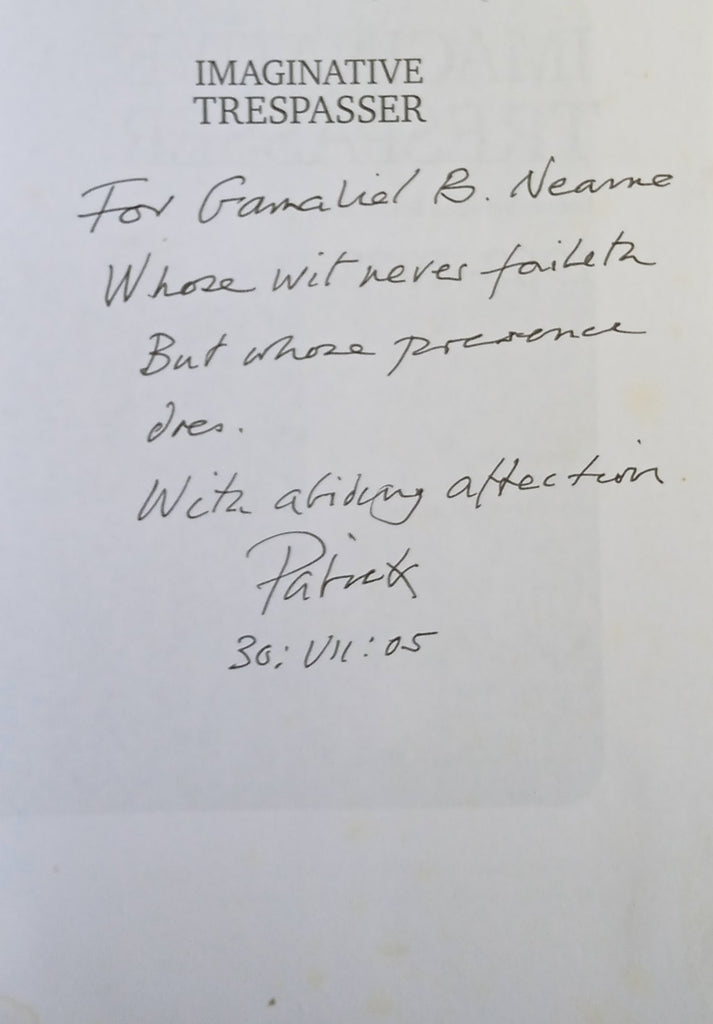 IMAGINATIVE
TRESPASSER
For Gamaliel B. Nearne
Whose wit never faileth
But whose presence
does.
With abiding affection
Patrick
30: VII: 05